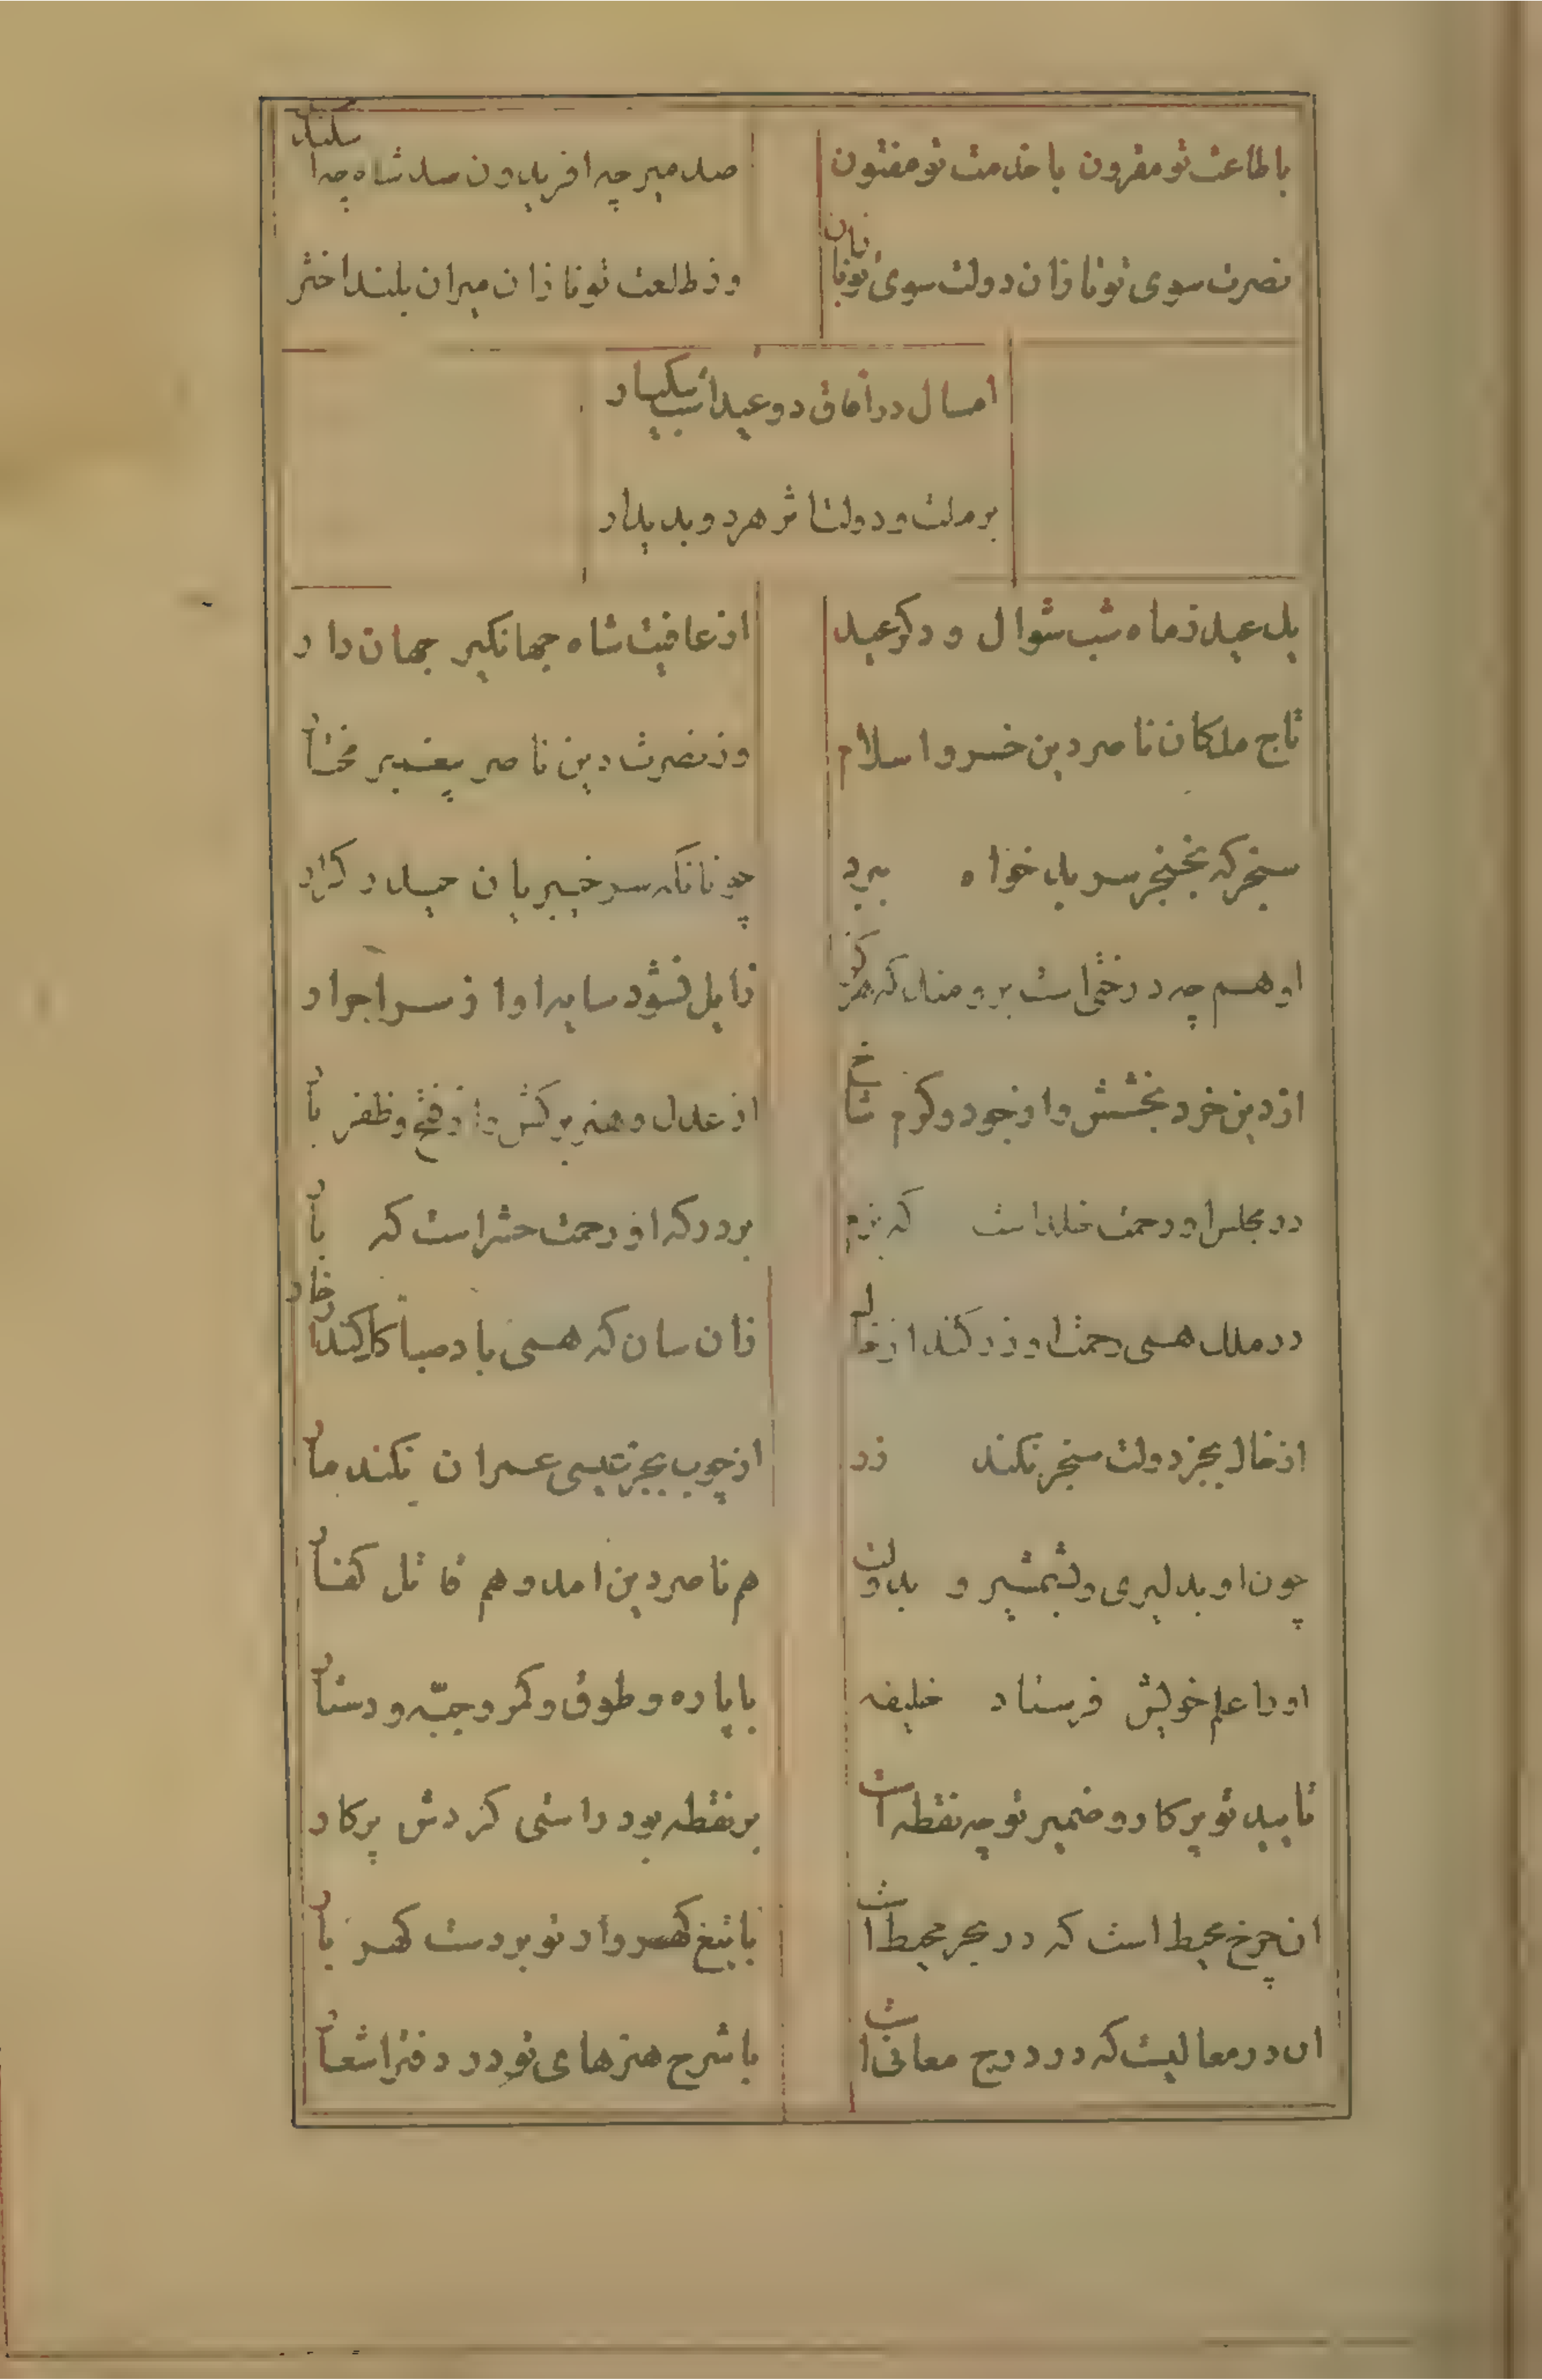 باطاعت تو مقرون باخدمت تو مفتون
صد میر چه افریدون صد شاه چه اسکندر
نصرت سوی تو تازان دولت سوی تو یازان
وز طلعت تو نازان میران بلند اختر
امسال در آفاق دو عید است بیکبار
بر ملت و دولت اثر هر دو پدیدار
یک عید ز ماه شب شوال و دکر عید
از عافیت شاه جهانکیر جهاندار
تاج ملکان ناصر دین خسرو اسلام
وز نصرت دین ناصر پیغمبر مختار
سنجر که بخنجر سر بدخواه ببرد
چونانکه سر خیبریان حیدر کرار
او هم چه درختی است برومند که هرکز
زایل نشود سایه او از سر احرار
از دین خرد بخشش و از جود و کرم شاخ
از عدل و هنر برکش و از فتح و ظفر بار
در مجلس او رحمت خلد است که بزم
بر درکه او زحمت حشر است که بار
در ملک همی رحمت او زر کند از خاک
زان سان که همی باد صبا کل کند از خار
از خاک بجز دولت سنجر نکند زر
از چوب بجز عیسی عمران نکند مار
چون او بدلیری و بشمشیر و بدولت
هم ناصر دین امد و هم قاتل کفار
او را علم خویش فرستاد خلیفه
با یاره و طوق و کمر و جبّه و دستار
تایید تو پرکار و ضمیر تو چه نقطه است
بر نقطه بود راستی کردش پرکار
ان چرخ محیط است که در بحر محیط است
یا تیغ کهردار تو بر دست کهربار
ان در معالیست که در درج معانی است
یا شرح هنرهای تو در دفتر اشعار